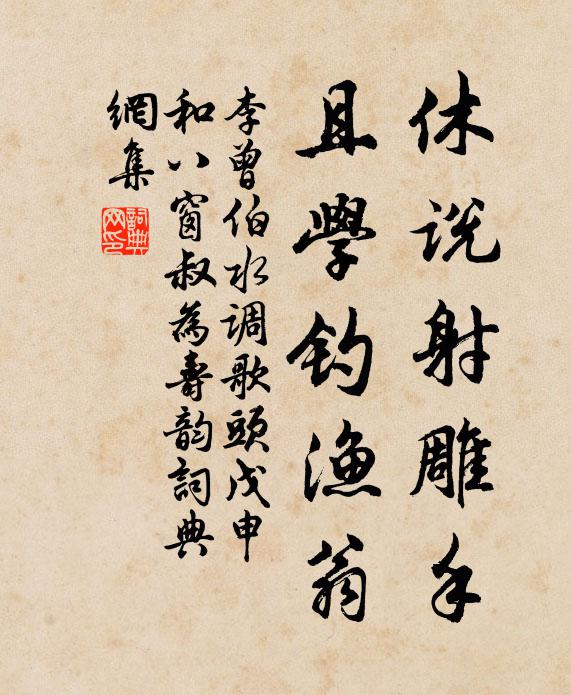 休说射雕手
且學钓渔翁
李曾伯水调歌頭戊申
和八窗叔為壽韵詞典
網集
詞典网印